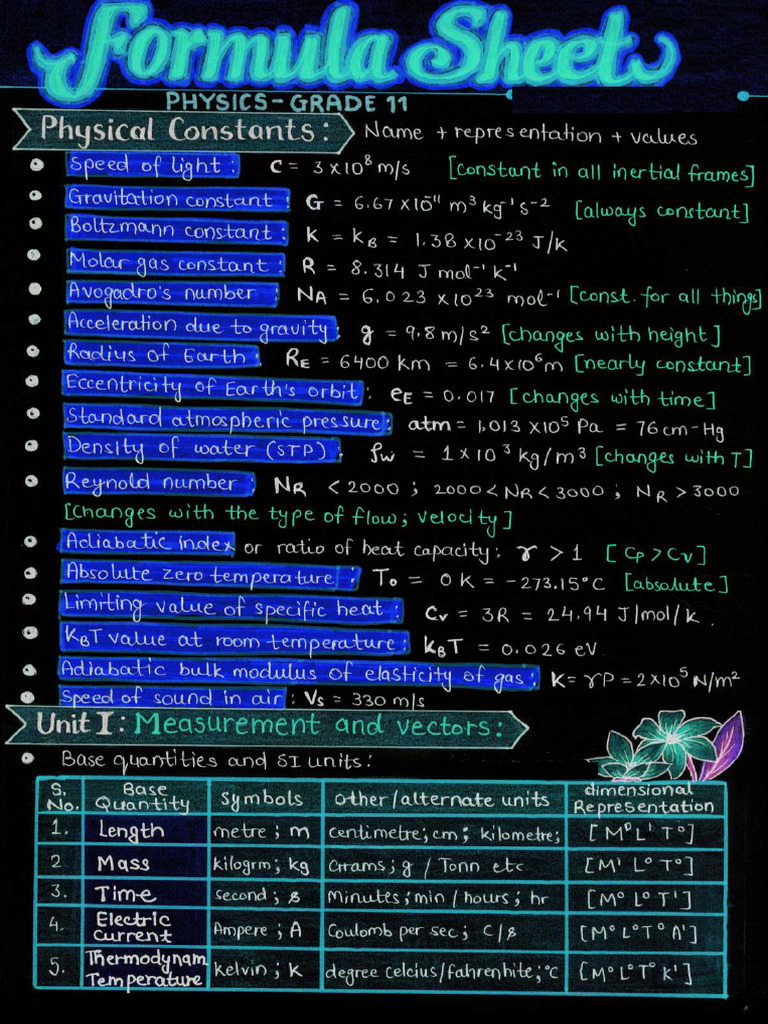 Formula Sheet
PHYSICS-GRADE 11
Physical Constants: Name + representation + values
Speed of light: C = 3×10⁸ m/s [constant in all inertial frames]
Gravitation constant: G = 6.67×10⁻¹¹ m³ kg⁻¹ s⁻² [always constant]
Boltzmann constant: K = K_B = 1.38×10⁻²³ J/K
Molar gas constant: R = 8.314 J mol⁻¹ K⁻¹
Avogadro's number: N_A = 6.023 × 10²³ mol⁻¹ [const. for all things]
Acceleration due to gravity: g = 9.8 m/s² [changes with height]
Radius of Earth: R_E = 6400 km = 6.4×10⁶m [nearly constant]
Eccentricity of Earth's orbit: e_E = 0.017 [changes with time]
Standard atmospheric pressure: atm = 1.013 ×10⁵ Pa = 76 cm-Hg
Density of water (STP): ρw = 1×10³ kg/m³ [changes with T]
Reynold number: N_R < 2000 ; 2000 < N_R < 3000 ; N_R > 3000
[Changes with the type of flow; velocity]
Adiabatic index or ratio of heat capacity: γ > 1 [Cp > Cv]
Absolute zero temperature: T₀ = 0 K = -273.15°C [absolute]
Limiting value of specific heat: Cv = 3R = 24.94 J/mol/K.
K_BT value at room temperature: k_BT = 0.026 eV
Adiabatic bulk modulus of elasticity of gas: K = γP = 2×10⁵ N/m²
Speed of sound in air: Vs = 330 m/s
Unit I: Measurement and vectors:
Base quantities and SI units:
S. No. Base Quantity Symbols Other/alternate units dimensional Representation
1. Length metre ; m centimetre; cm; kilometre; [M⁰ L¹ T⁰]
2 Mass kilogrm; kg Grams; g / Tonn etc [M¹ L⁰ T⁰]
3. Time second; s Minutes; min / hours; hr [M⁰ L⁰ T¹]
4. Electric Current Ampere; A Coulomb per sec; C/s [M⁰ L⁰ T⁰ A¹]
5. Thermodynam Temperature kelvin; K degree celcius/fahrenhite; °C [M⁰ L⁰ T⁰ K¹]